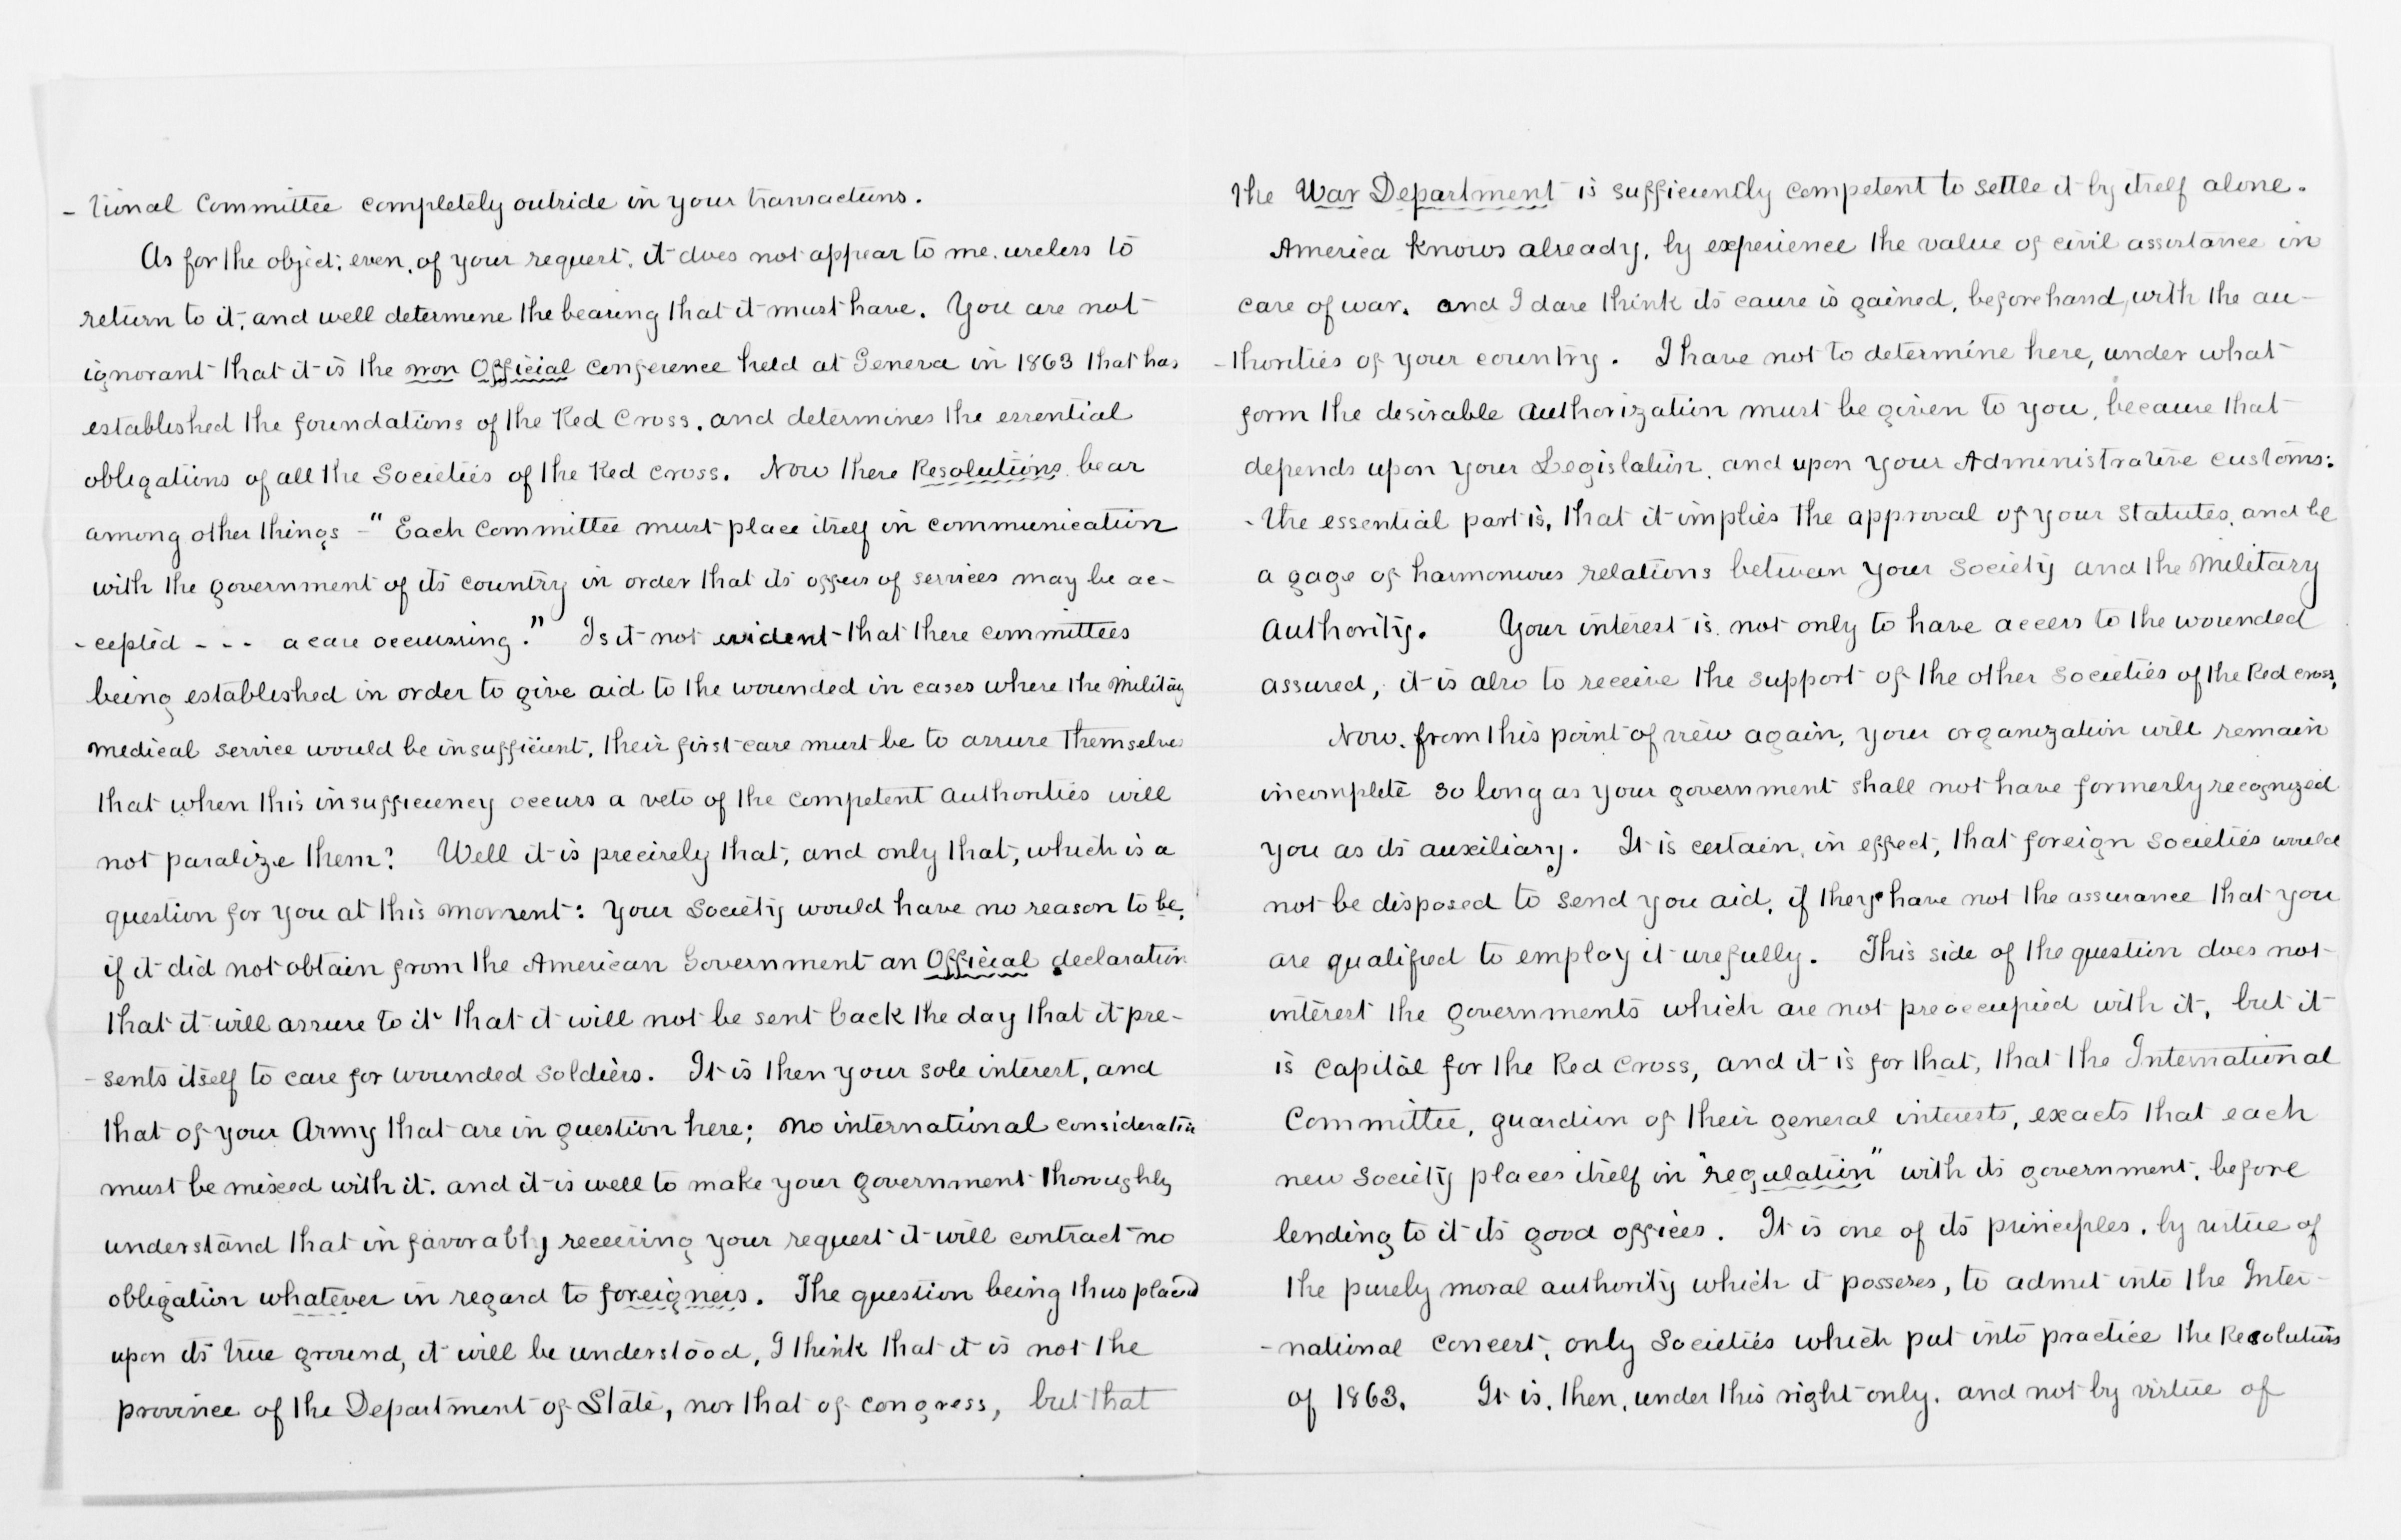 - tional Committee completely outside in your transactions.
As for the object; even, of your request, it does not appear to me, useless to
return to it; and well determine the bearing that it must have. You are not
ignorant that it is the non Official conference held at Geneva in 1863 that has
established the foundations of the Red Cross, and determines the essential
obligations of all the Societies of the Red Cross. Now these Resolutions bear
among other things - "Each Committee must place itself in communication
with the government of its country in order that its offers of services may be ac-
- cepted - - - a case occurring." Is it not evident that these committees
being established in order to give aid to the wounded in cases where the Military
medical service would be insufficient, their first care must be to assure themselves
that when this insufficiency occurs a veto of the competent authorities will
not paralize them? Well it is precisely that, and only that, which is a
question for you at this moment: Your Society would have no reason to be,
if it did not obtain from the American Government an Official declaration
that it will assure to it that it will not be sent back the day that it pre-
- sents itself to care for wounded soldiers. It is then your sole interest, and
that of your Army that are in question here; no international consideration
must be mixed with it. and it is well to make your government thoroughly
understand that in favorably receiving your request it will contract no
obligation whatever in regard to foreigners. The question being thus placed
upon its true ground, it will be understood, I think that it is not the
province of the Department of State, nor that of congress, but that
the War Department is sufficiently competent to settle it by itself alone.
America knows already, by experience the value of civil assistance in
case of war. and I dare think its cause is gained, beforehand, with the au-
- thorities of your country. I have not to determine here, under what
form the desirable authorization must be given to you, because that
depends upon your Legislation, and upon your Administrative customs:
- the essential part is, that it implies the approval of your Statutes, and be
a gage of harmonious relations between your Society and the Military
Authority. Your interest is not only to have access to the wounded
assured, it is also to receive the support of the other Societies of the Red Cross,
Now, from this point of view again, your organization will remain
incomplete so long as your government shall not have formerly recognized
you as its auxiliary. It is certain, in effect, that foreign Societies would
not be disposed to send you aid, if they have not the assurance that you
are qualified to employ it usefully. This side of the question does not
interest the governments which are not preoccupied with it, but it
is capital for the Red Cross, and it is for that, that the International
Committee, guardian of their general interests, exacts that each
new Society places itself in "regulation" with its government, before
lending to it its good offices. It is one of its principles, by virtue of
the purely moral authority which it posseses, to admit into the Inter-
- national concert, only Societies which put into practice the Resolutions
of 1863. It is, then, under this right only, and not by virtue of